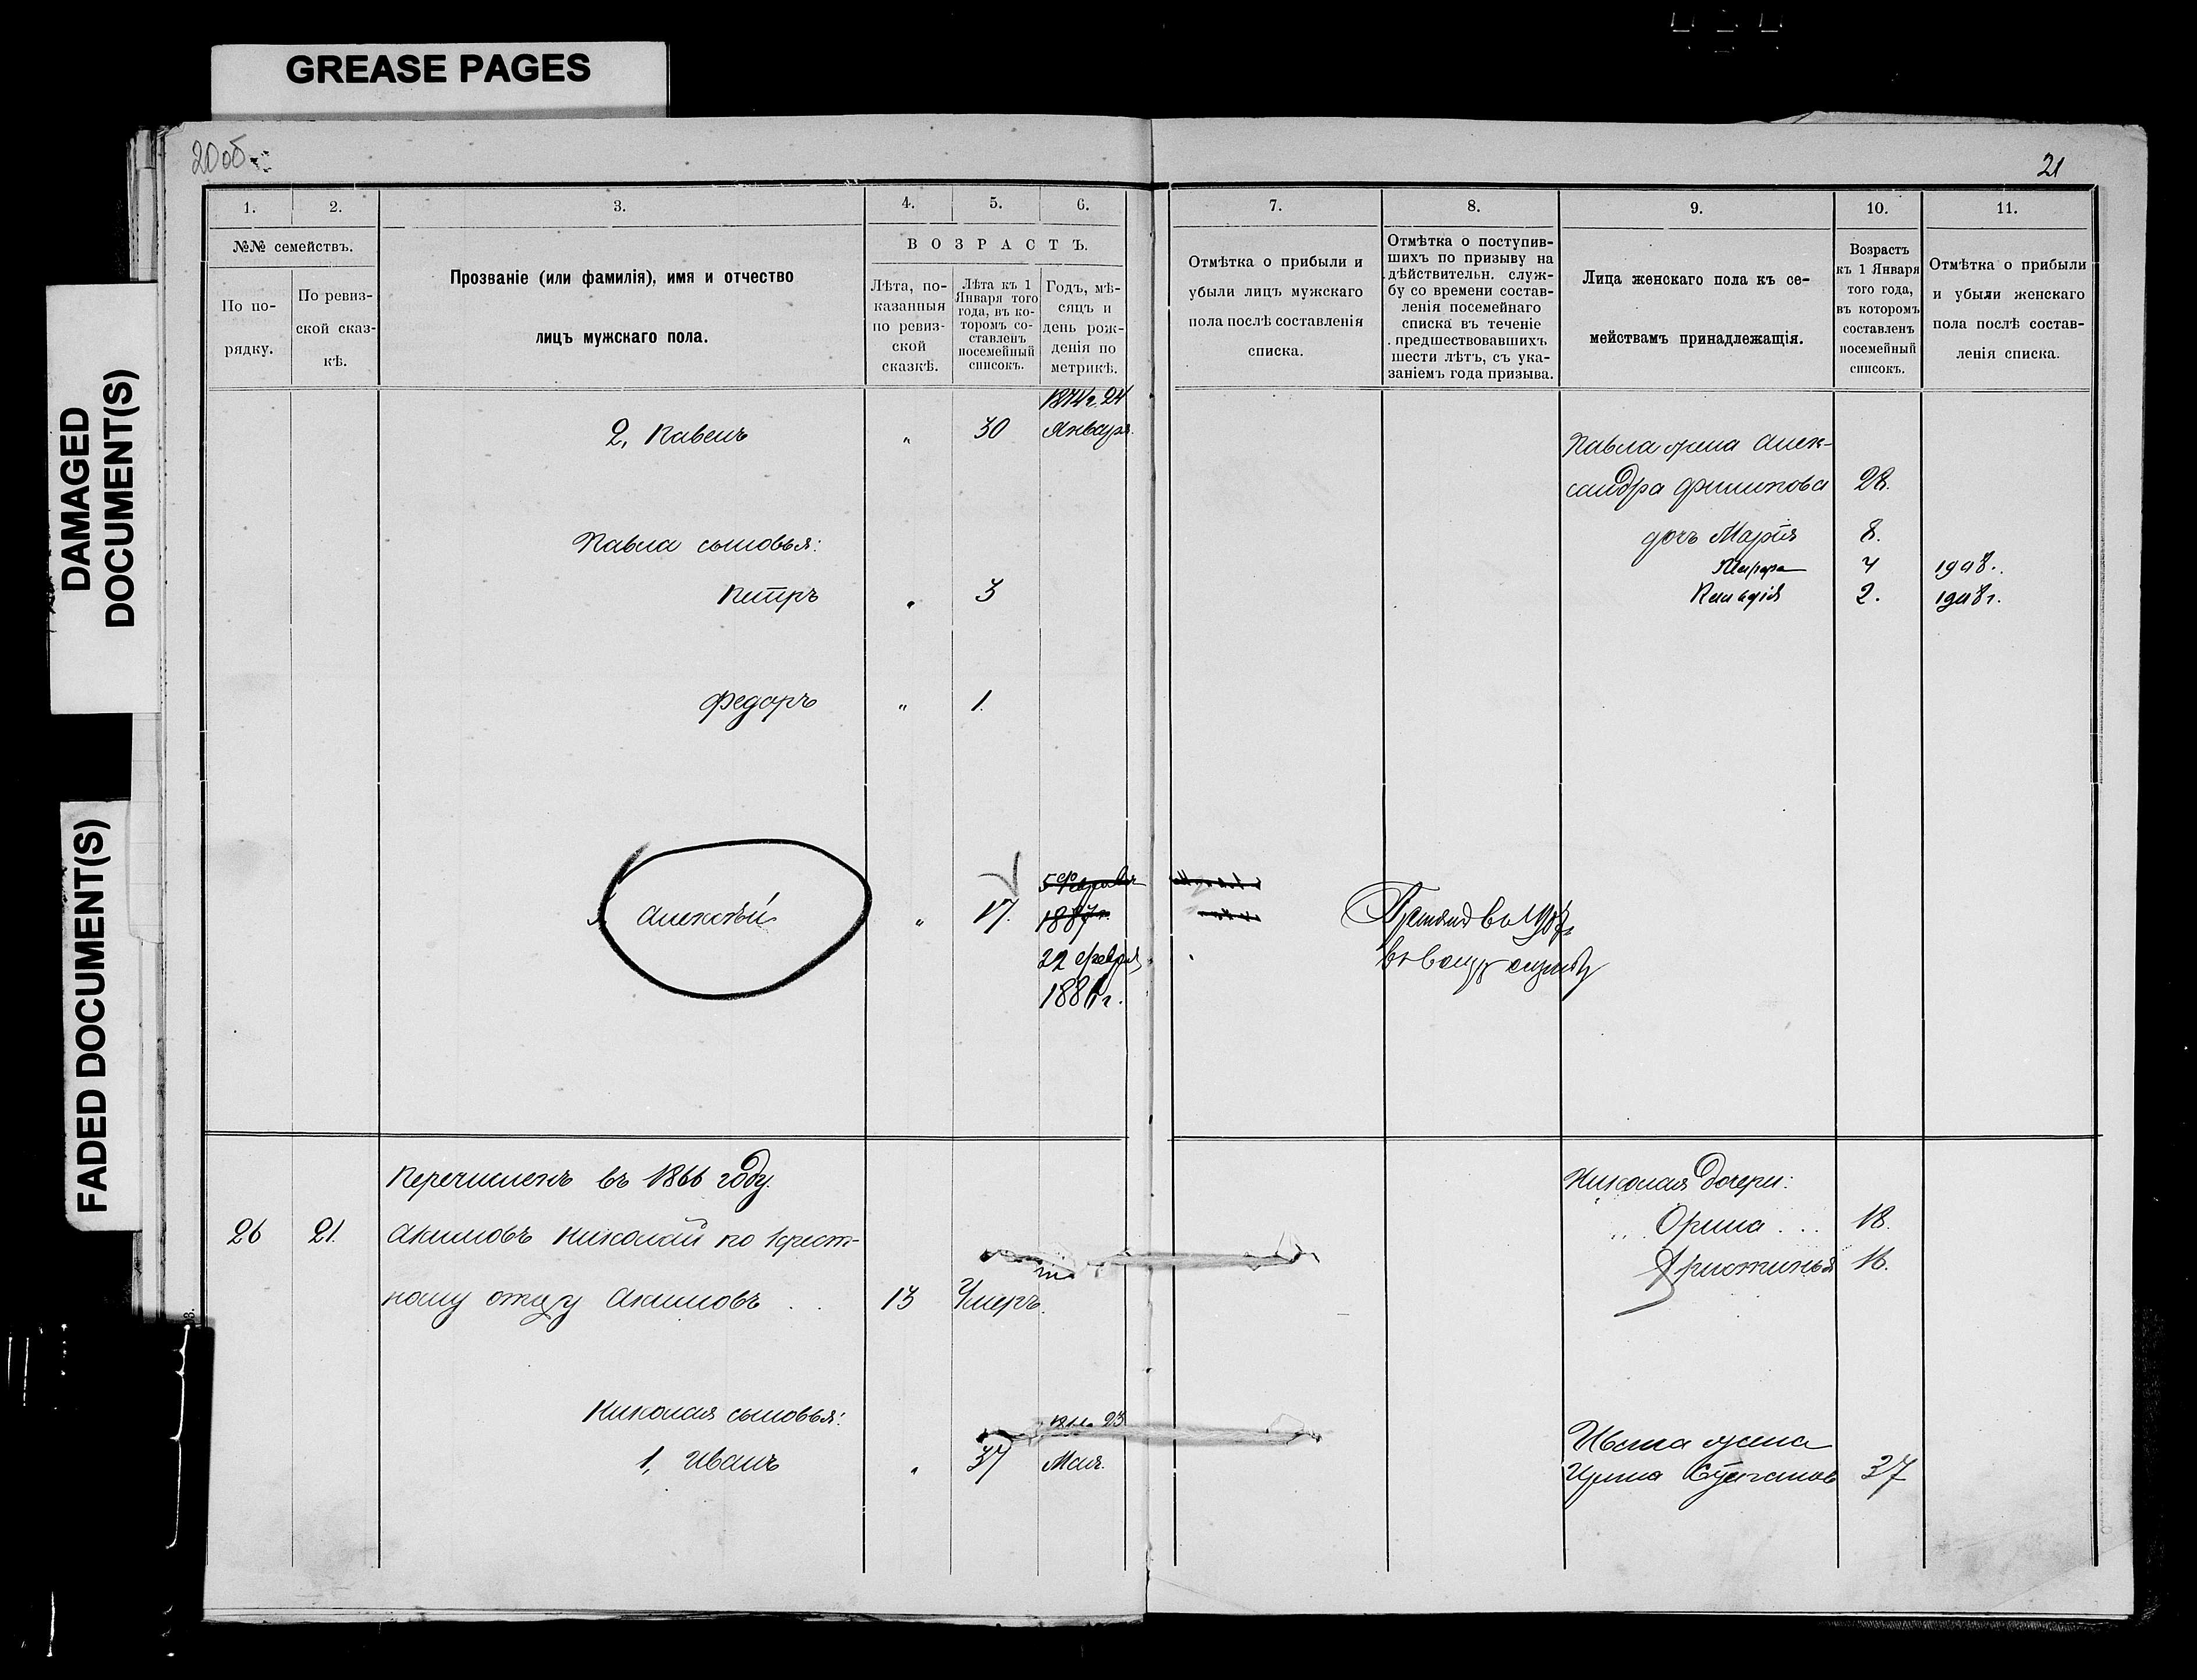 GREASE PAGES
DAMAGED
DOCUMENT(S)
FADED DOCUMENT(S)
20об
21
1.
2.
3.
4.
5.
6.
7.
8.
9.
10.
11.
№№ семействъ.
По по-
рядку.
По ревиз-
ской сказ-
кѣ.
Прозваніе (или фамилія), имя и отчество
лицъ мужскаго пола.
ВОЗРАСТЪ.
Лѣта, по-
казанныя
по ревиз-
ской
сказкѣ.
Лѣта къ 1
Января того
года, въ ко-
торомъ со-
ставленъ
посемейный
списокъ.
Годъ, мѣ-
сяцъ и
день рож-
денія по
метрикѣ.
Отмѣтка о прибыли и
убыли лицъ мужскаго
пола послѣ составленія
списка.
Отмѣтка о поступив-
шихъ по призыву на
дѣйствительн. служ-
бу со времени состав-
ленія посемейнаго
списка въ теченіе
предшествовавшихъ
шести лѣтъ, съ ука-
заніемъ года призыва.
Лица женскаго пола къ се-
мействамъ принадлежащія.
Возрастъ
къ 1 Января
того года,
въ которомъ
составленъ
посемейный
списокъ.
Отмѣтка о прибыли
и убыли женскаго
пола послѣ состав-
ленія списка.
2, Павелъ " 30 1874 г. 24
Января.
Павла жена Алек-
сандра Филипова 28.
Павла сыновья:
дочь Марія 8.
4 1908.
Петръ " 3
2. 1908 г.
Федоръ " 1.
Алексѣй " 17.
5 Февраля
1887 г.
22 Февраля
1886 г.
Принятъ въ
въ службу
Перечисленъ въ 1866 году.
26 21. Акимовъ Николай по крест-
ному отцу Акимовъ . . 13 Умеръ.
Николая дочери:
" Орина . . . 18.
Христинья 16.
Николая сыновья:
1, Иванъ " 37 23
Мая.
Ивана жена
Ирина 37